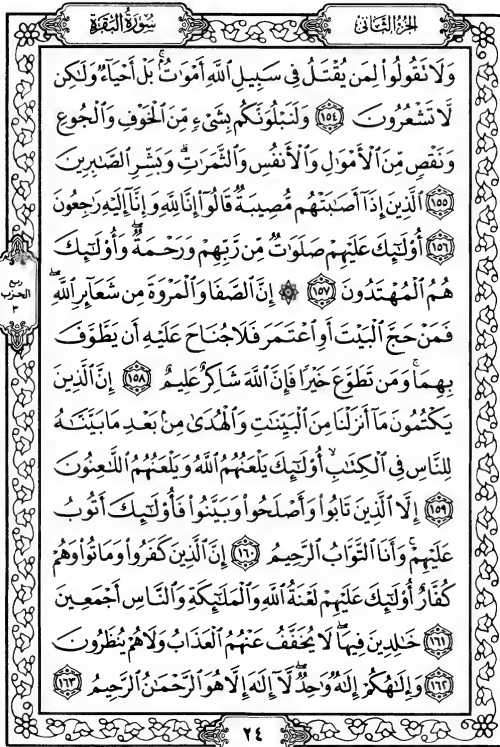 سُورَةُ البَقَرَةِ
الجُزْءُ الثَّانِي
وَلَا تَقُولُوا۟ لِمَن يُقْتَلُ فِى سَبِيلِ ٱللَّهِ أَمْوَٰتٌۢ ۚ بَلْ أَحْيَآءٌ وَلَـٰكِن
لَّا تَشْعُرُونَ ١٥٤ وَلَنَبْلُوَنَّكُم بِشَىْءٍ مِّنَ ٱلْخَوْفِ وَٱلْجُوعِ
وَنَقْصٍ مِّنَ ٱلْأَمْوَٰلِ وَٱلْأَنفُسِ وَٱلثَّمَرَٰتِ ۗ وَبَشِّرِ ٱلصَّـٰبِرِينَ
١٥٥ ٱلَّذِينَ إِذَآ أَصَـٰبَتْهُم مُّصِيبَةٌ قَالُوٓا۟ إِنَّا لِلَّهِ وَإِنَّآ إِلَيْهِ رَٰجِعُونَ
١٥٦ أُو۟لَـٰٓئِكَ عَلَيْهِمْ صَلَوَٰتٌ مِّن رَّبِّهِمْ وَرَحْمَةٌ ۖ وَأُو۟لَـٰٓئِكَ
هُمُ ٱلْمُهْتَدُونَ ١٥٧ ۞ إِنَّ ٱلصَّفَا وَٱلْمَرْوَةَ مِن شَعَآئِرِ ٱللَّهِ ۖ
فَمَنْ حَجَّ ٱلْبَيْتَ أَوِ ٱعْتَمَرَ فَلَا جُنَاحَ عَلَيْهِ أَن يَطَّوَّفَ
بِهِمَا ۚ وَمَن تَطَوَّعَ خَيْرًا فَإِنَّ ٱللَّهَ شَاكِرٌ عَلِيمٌ ١٥٨ إِنَّ ٱلَّذِينَ
يَكْتُمُونَ مَآ أَنزَلْنَا مِنَ ٱلْبَيِّنَـٰتِ وَٱلْهُدَىٰ مِنۢ بَعْدِ مَا بَيَّنَّـٰهُ
لِلنَّاسِ فِى ٱلْكِتَـٰبِ ۙ أُو۟لَـٰٓئِكَ يَلْعَنُهُمُ ٱللَّهُ وَيَلْعَنُهُمُ ٱللَّـٰعِنُونَ
١٥٩ إِلَّا ٱلَّذِينَ تَابُوا۟ وَأَصْلَحُوا۟ وَبَيَّنُوا۟ فَأُو۟لَـٰٓئِكَ أَتُوبُ
عَلَيْهِمْ ۚ وَأَنَا ٱلتَّوَّابُ ٱلرَّحِيمُ ١٦٠ إِنَّ ٱلَّذِينَ كَفَرُوا۟ وَمَاتُوا۟ وَهُمْ
كُفَّارٌ أُو۟لَـٰٓئِكَ عَلَيْهِمْ لَعْنَةُ ٱللَّهِ وَٱلْمَلَـٰٓئِكَةِ وَٱلنَّاسِ أَجْمَعِينَ
١٦١ خَـٰلِدِينَ فِيهَا ۖ لَا يُخَفَّفُ عَنْهُمُ ٱلْعَذَابُ وَلَا هُمْ يُنظَرُونَ
١٦٢ وَإِلَـٰهُكُمْ إِلَـٰهٌ وَٰحِدٌ ۖ لَّآ إِلَـٰهَ إِلَّا هُوَ ٱلرَّحْمَـٰنُ ٱلرَّحِيمُ ١٦٣
ربع
الحزب
٣
٢٤